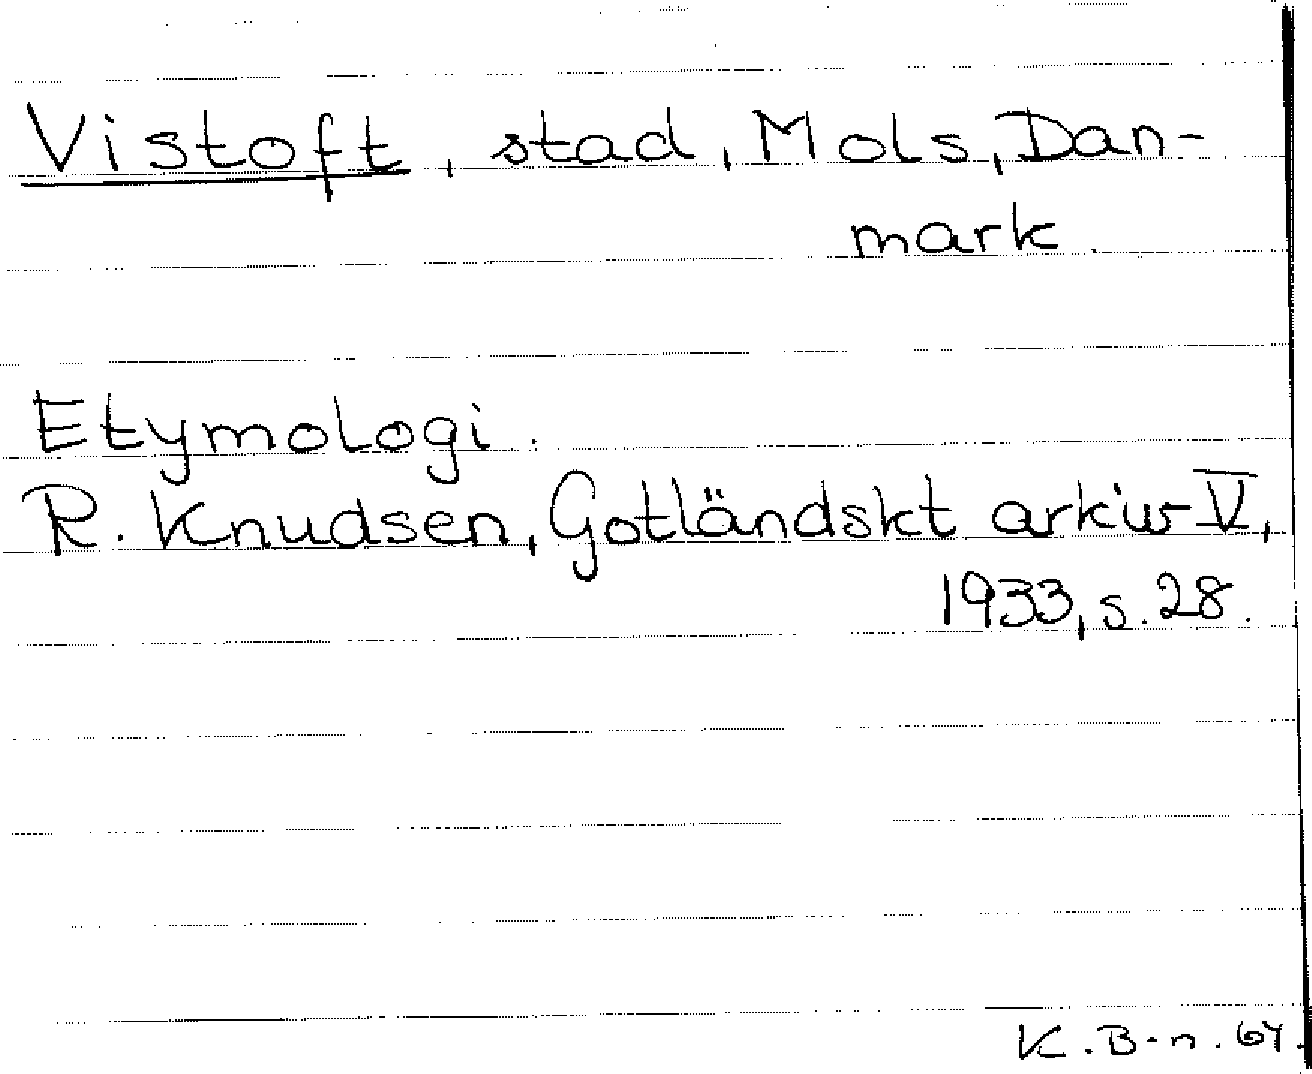 Vistoft, stad, Mols, Dan-
mark.
Etymologi.
R. Knudsen, Gotländskt arkiv V,
1933, s. 28.
K.B-n. 64.